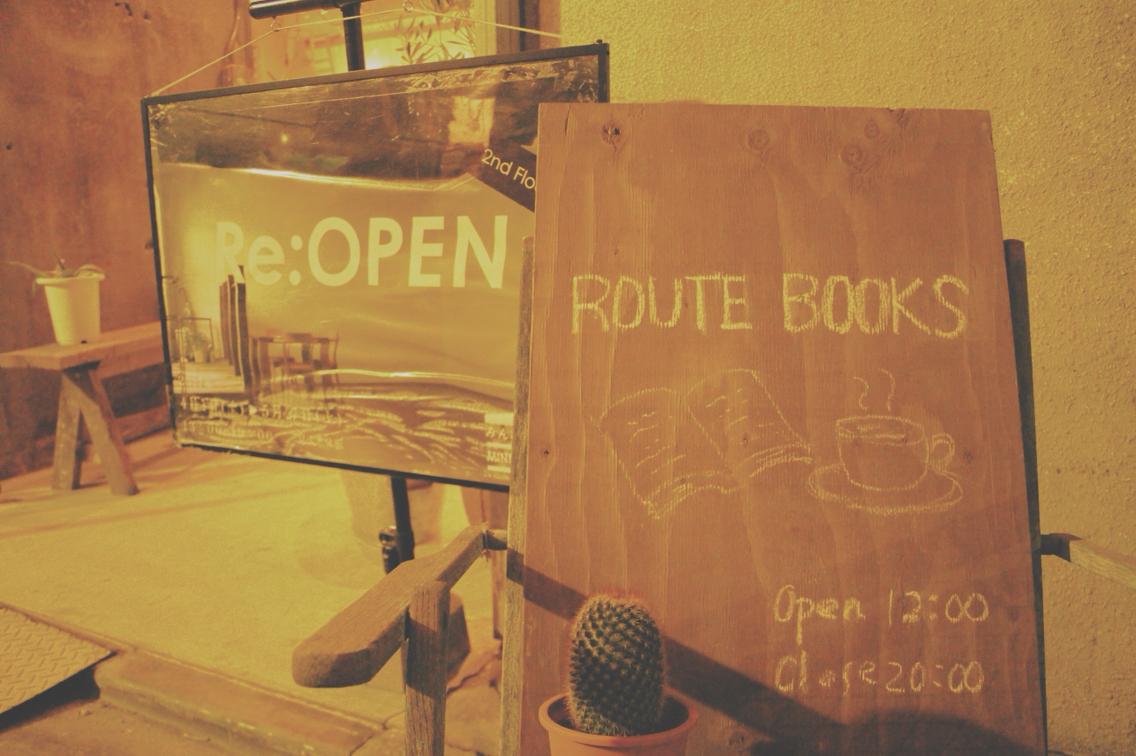 2nd Flo
Re:OPEN
みん
MINI
ROUTE BOOKS
Open 12:00
Close 20:00